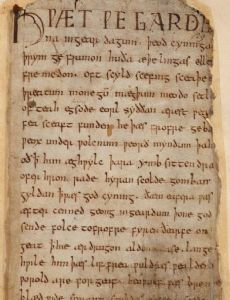 HǷÆT ǷE GARDE
na ingear dagum. þeod cyninga
þrym ge frunon huða æþelingas elle
fre medon. oft scyld scefing sceaþe
þreatum monegū mægþum meodo setla
of teah egsode eorl syððan ærest ƿear
fea sceaft funden he þæs frofre geba
ƿeox under ƿolcnum ƿeorð myndum þah
oð ꝥ him æghƿylc þara ymb sittendra
ofer hron rade hyran scolde gomban
gyldan ꝥ ƿæs god cyning. ðæm eafera ƿæs
æfter cenned geong ingeardum þone god
sende folce tofrofre fyren ðearfe on
geat ꝥ hie ær drugon aldor ase. lange
hƿile him þæs lif frea ƿuldres ƿealdend
ƿorold are forgeaf. beoƿulf ƿæs breme
blæd ƿide sprang